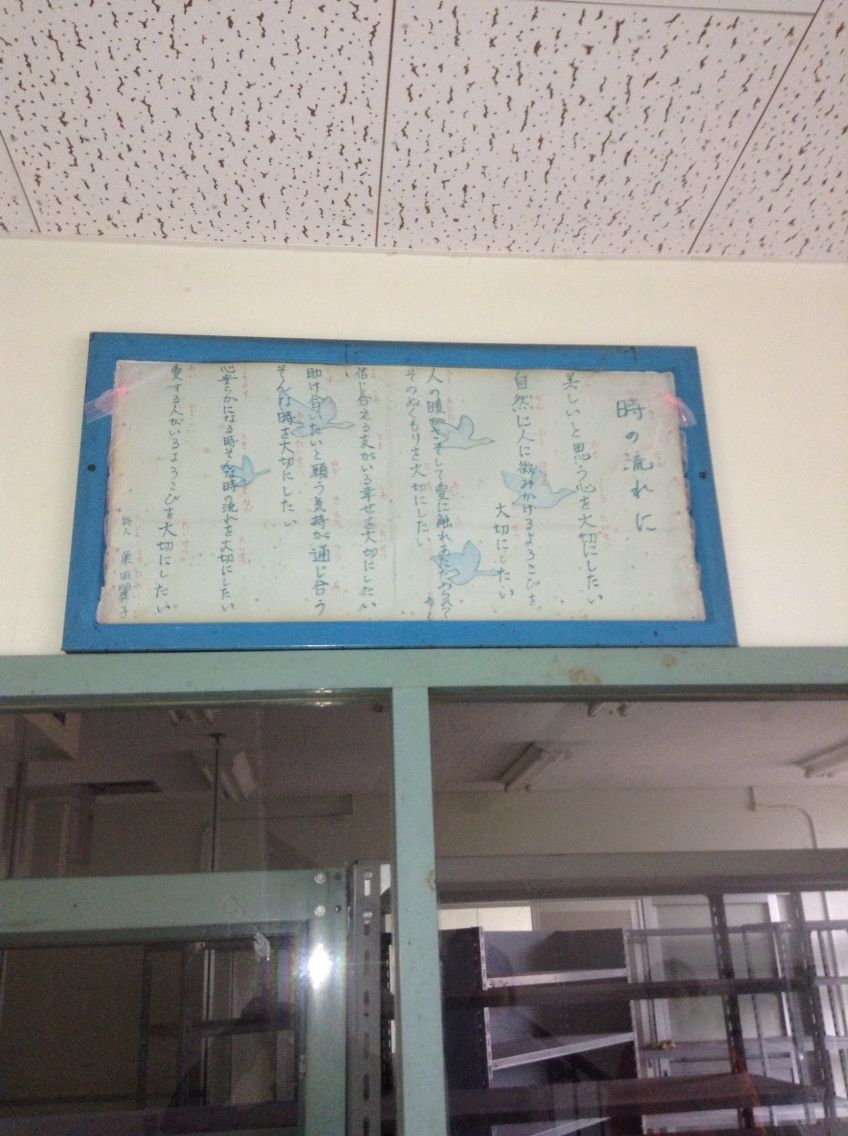 時の流れに
美しいと思う心を大切にしたい
自然に人に微みかけるよろこびを
大切にしたい
人の暖かさそして愛に触れあたためられて
そのぬくもりを大切にしたい
信じ合える友がいる幸せを大切にしたい
助け合いたいと願う気持が通じ合う
そんな時を大切にしたい
心安らかになる時そんな時の流れを大切にしたい
愛する人がいるよろこびを大切にしたい
詩人 栗田
子